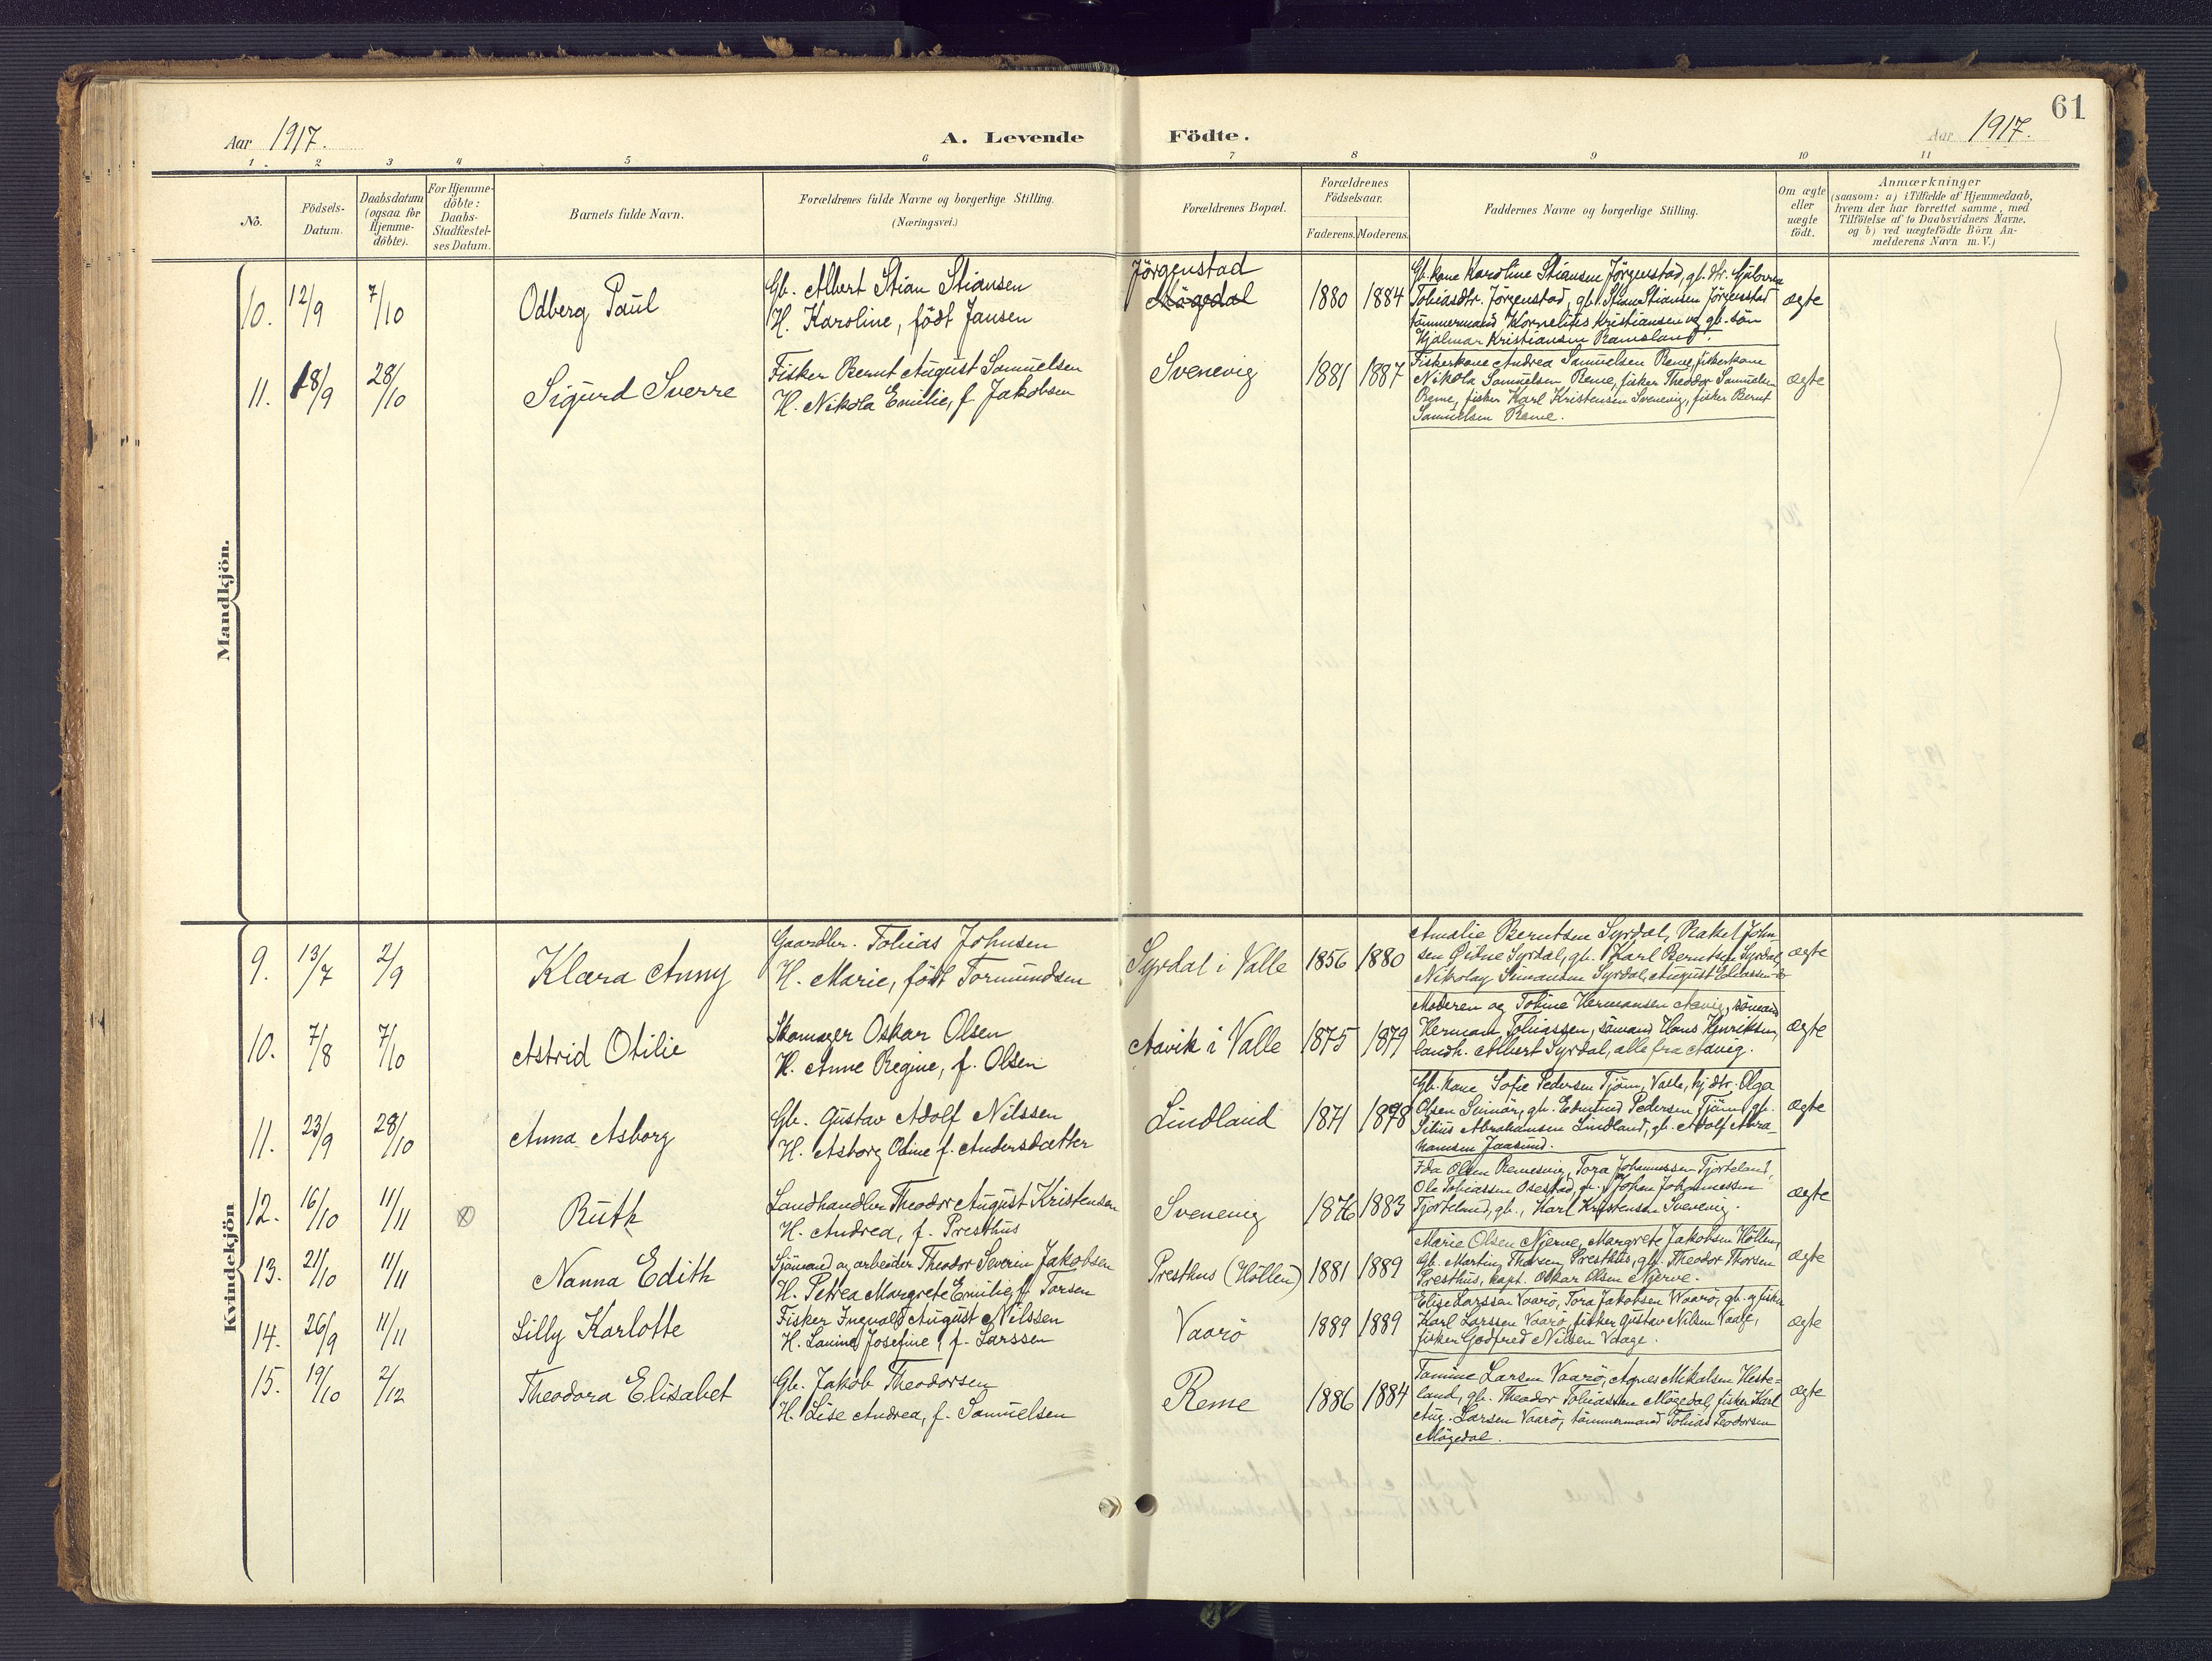 61
Aar 1917.
A. Levende Födte.
Aar 1917.
1 2 3 4 5 6 7 8 9 10 11
No.
Födsels-
Datum.
Daabsdatum
(ogsaa for
Hjemme-
döbte).
For Hjemme-
döbte:
Daabs-
Stadfæstel-
ses Datum.
Barnets fulde Navn.
Forældrenes fulde Navne og borgerlige Stilling.
(Næringsvei.)
Forældrenes Bopæl.
Forældrenes
Födselsaar.
Faderens. Moderens.
Faddernes Navne og borgerlige Stilling.
Om ægte
eller
uægte
födt.
Anmærkninger
(saasom: a) i Tilfælde af Hjemmedaab,
hvem der har forrettet samme, med
Tilföielse af to Daabsvidners Navne,
og b) ved uægtefödte Börn An-
melderens Navn m. V.)
Mandkjön.
10. 12/9 7/10 Odberg Paul
Gb. Albert Stian Stiansen
H. Karoline, födt Jansen
Jörgenstad
Mögedal
1880 1884
Gb. kone Karoline Stiansen Jörgenstad, gb. dtr.
Tobiasdtr. Jörgenstad, gb. Stian Stiansen Jörgenstad
tömmermand Kornelius Kristiansen og gb. sön
Hjalmar Kristiansen Ramsland.
ægte
11. 18/9 28/10 Sigurd Sverre
Fisker Bernt August Samuelsen
H. Nikola Emilie, f. Jakobsen
Svenevig
1881 1887
Fiskerkone Andrea Samuelsen Reme, fiskerkone
Nikola Samuelsen Reme, fisker Theodor Samuelsen
Reme, fisker Karl Kristensen Svenevig, fisker Bernt
Samuelsen Reme.
ægte
Kvindekjön
9. 13/7 2/9 Klara Anny
Gaardbr. Tobias Johnsen
H. Marie, födt Tormundsen
Syrdal i Valle
1856 1880
Amalie Berntsen Syrdal, Rakel John
sen Öidne Syrdal, gb. Karl Berntsen Syrdal,
Nikolay Simonsen Syrdal, August
ægte
10. 7/8 7/10 Astrid Otilie
Skomager Oskar Olsen
H. Anne Regine, f. Olsen
Aavik i Valle
1875 1879
Moderen og Tobine Hermansen Aavig, sömand
Herman Tobiassen, sömand Hans Henriksen,
landh. Albert Syrdal, alle fra Aavig.
ægte
11. 23/9 28/10 Anna Asborg
Gb. Gustav Adolf Nilssen
H. Asborg Oline f. Andersdatter
Lindland
1871 1878
Gb. kone Sofie Pedersen Tjöm, Valle, hj. dtr. Olga
Olsen gb. Edmund Pedersen Tjöm gb.
Abrahamsen Lindland, gb. Adolf Abra-
hamsen Jaasund.
ægte
12. 16/10 11/11 Ruth
Landhandler Theodor August Kristensen
H. Andrea, f. Presthus
Svenevig
1876 1883
Ida Olsen Remesvig, Tora Johannessen Tjorteland,
Ole Tobiassen Osestad, gb. Johan Johannessen
Tjorteland, gb., Karl Kristensen Svenevig.
ægte
13. 21/10 11/11 Nanna Edith
Sjömand og arbeider Theodor Severin Jakobsen
H. Petrea Margrete Emilie, f. Torsen
Presthus (Höllen)
1881 1889
Marie Olsen Njerve, Margrete Jakobsen Höllen,
Gb. Martin Thorsen Presthus, gb. Theodor Thorsen
Presthus, kapt. Oskar Olsen Njerve.
ægte
14. 26/9 11/11 Lilly Karlotte
Fisker Ingvald August Nilssen
H. Lanine Josefine, f. Larssen
Vaarö
1889 1889
Elise Larssen Vaarö, Tora Jakobsen Waarö, gb. og fisker
Karl Larssen Vaarö, fisker Gustav Nilsen Vaage,
fisker Godfred Nilsen Vaage.
ægte
15. 19/10 2/12 Theodora Elisabet
Gb. Jakob Theodorsen
H. Lise Andrea, f. Samuelsen
Reme
1886 1884
Tomine Larsen Vaarö, Agnes Mikalsen Heste-
land, gb. Theodor Tobiassen Mögedal, fisker Karl
Aug. Larsen Vaarö, tömmermand Tobias Teodorsen
Mögedal.
ægte